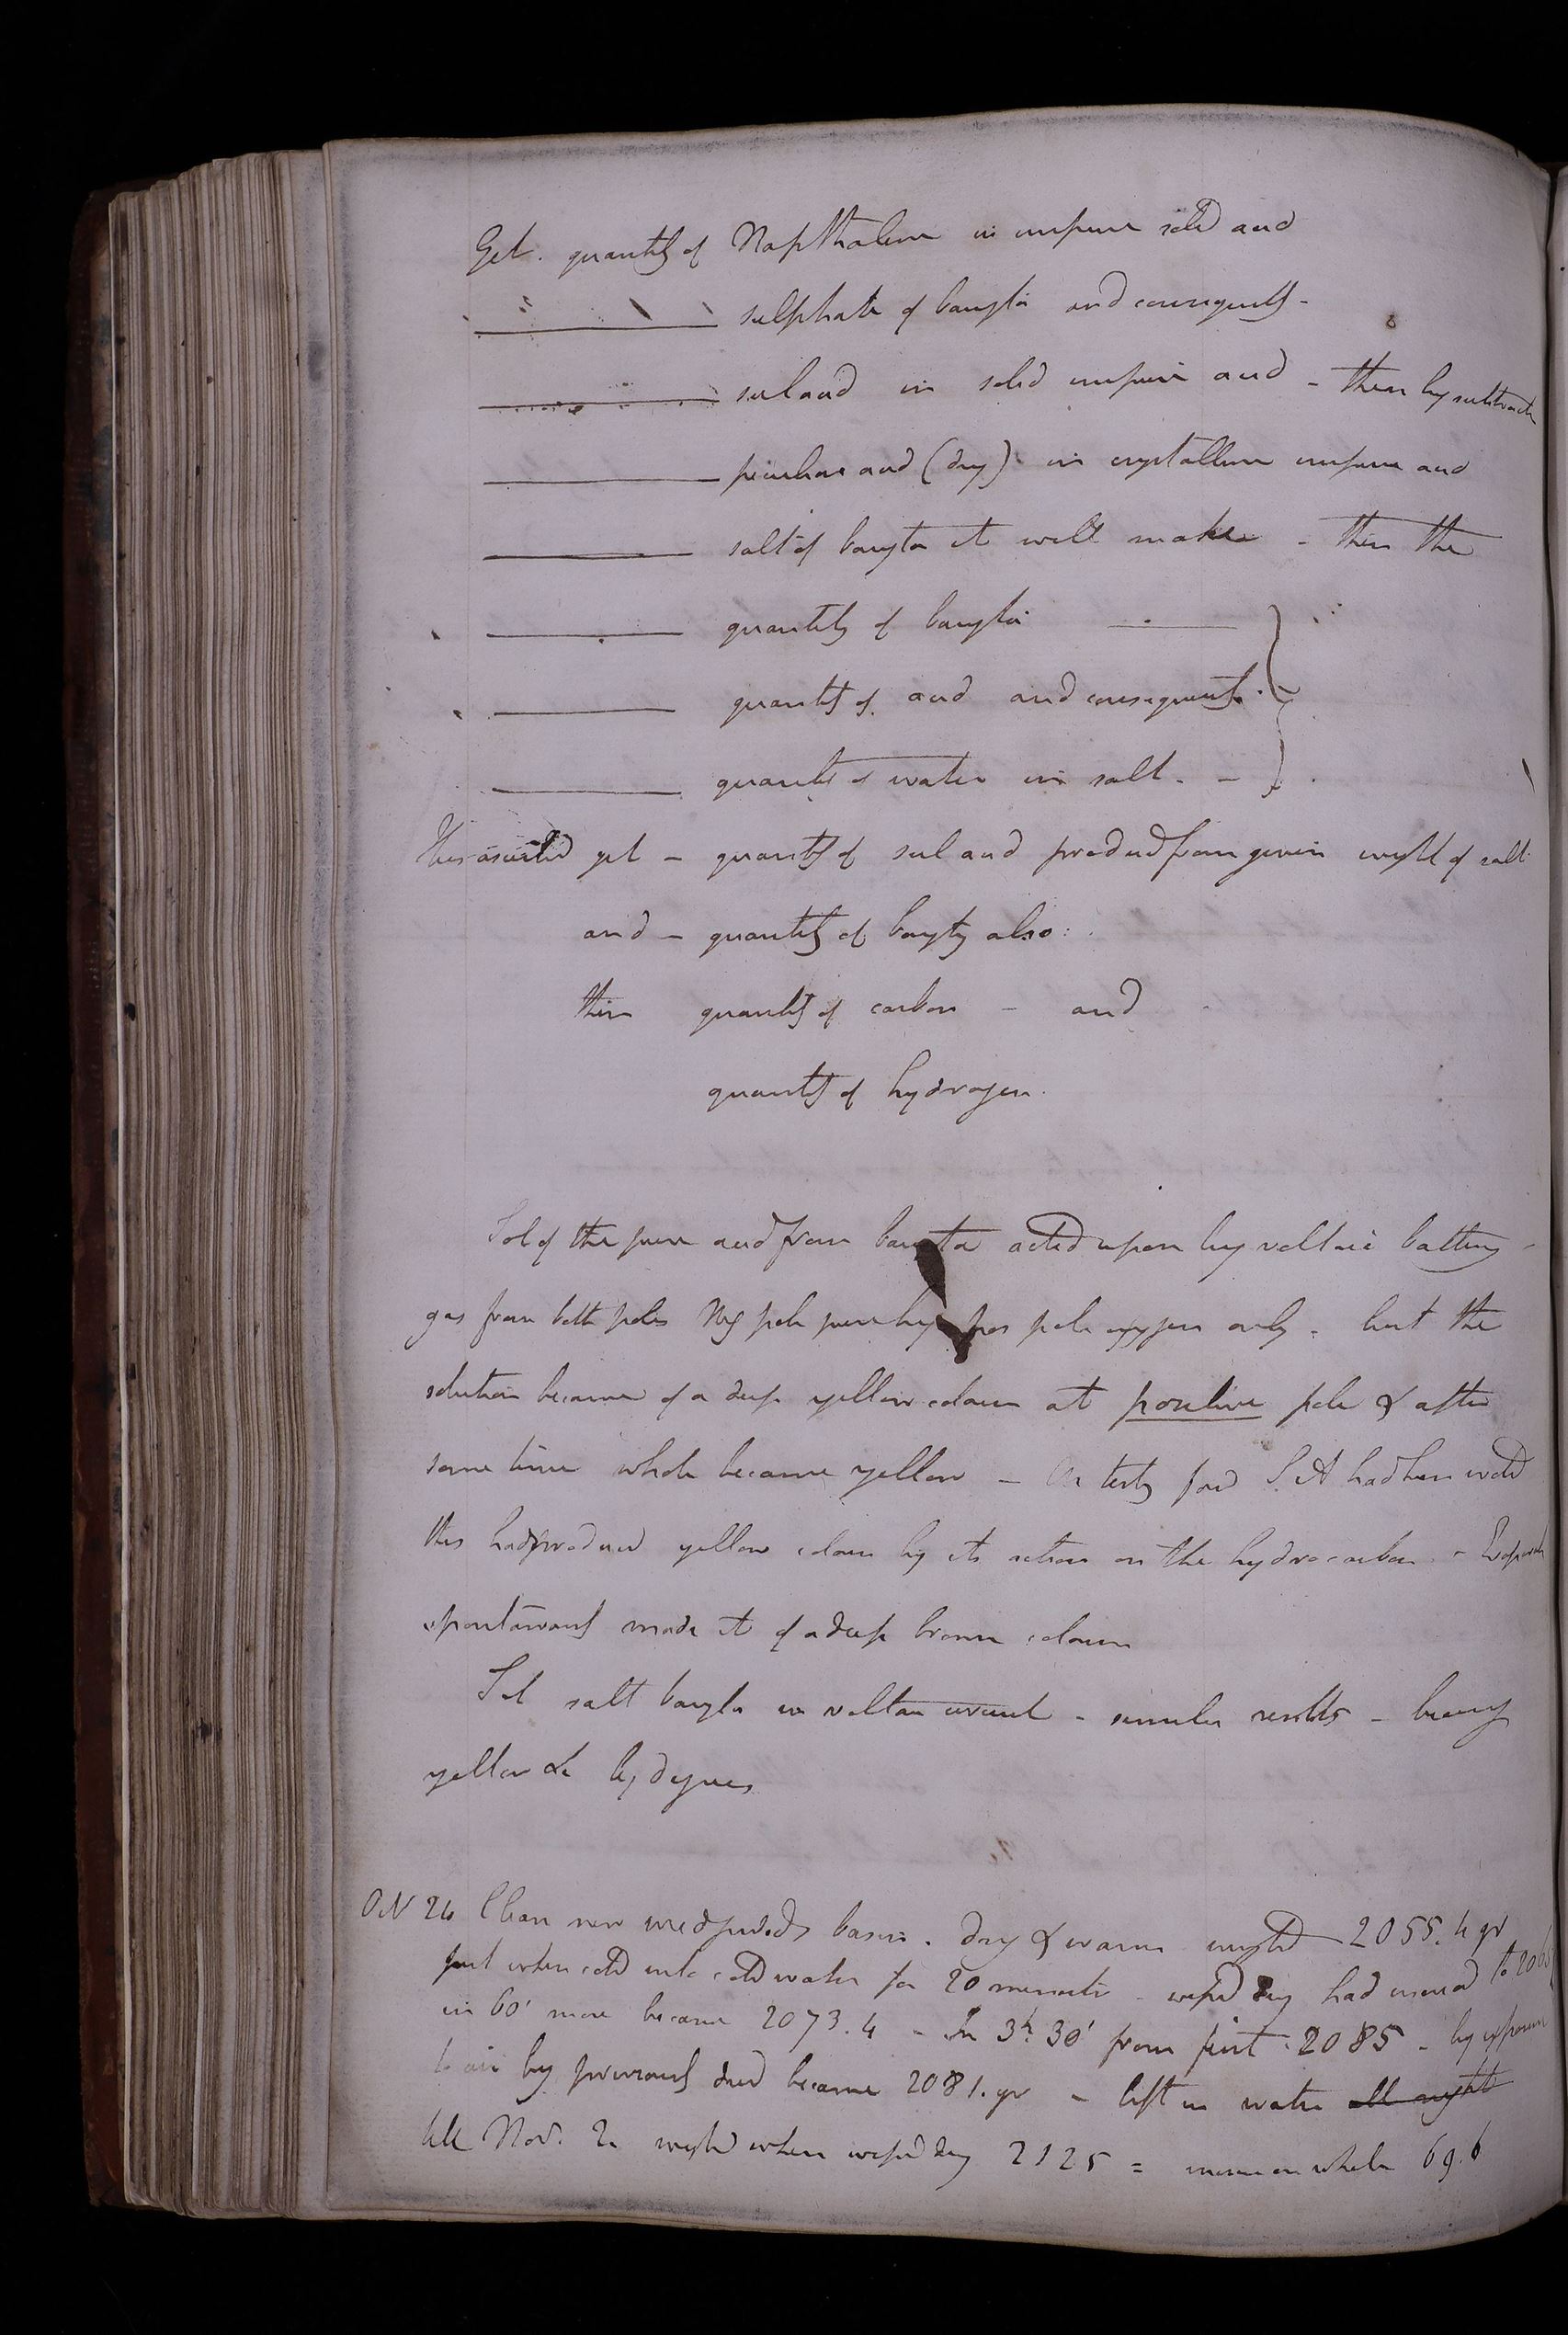 Get. quantity of Napthaline in impure solid acid
sulphate of baryta and consequently -
sul acid in solid impure acid - then by subtract
peculiar acid (dry) in crystalline impure acid
salt of baryta it will make - then the
quantity of baryta
quantity of acid and consequently
quantity of water in salt. -
This ascertd get - quantity of sul acid producd from given weight of salt
and - quantity of baryty also:
then quantity of carbon - and
quantity of hydrogen.
Sol of the pure acid from baryta acted upon by voltaic battery -
gas from both poles Neg pole pure hy pos pole oxygen only - but the
solution became of a deep yellow colour at positive pole & after
some time whole became yellow - On testg found S. A had been
this had produced yellow colour by its action on the hydrocarbon -
spontaneously made it of a deep brown colour
Sol salt baryta in voltaic circuit - similar results - becomg
yellow &c by degrees
Oct 26 Clean new basin. dry & warm weighed 2055.4 gr
put when cold into cold water for 20 minutes - wiped dry had increased to
in 60' more became 2073.4 - In 3h 30' from first 2085 - by exposure
to air by previously dried became 2081. gr - left in water all night
till Nov. 2. weighd when wiped dry 2125 = increase on whole 69.6